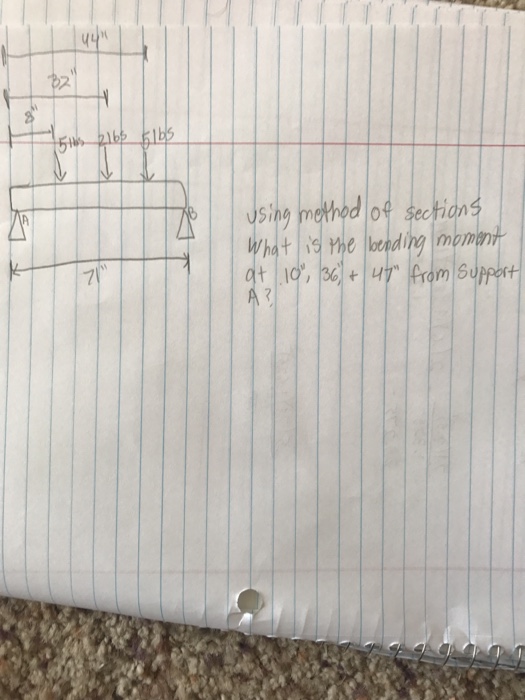 44"
32"
8"
5lbs 2lbs 5lbs
A
B
71"
using method of sections
What is the bending moment
at 10", 36", + 47" from support
A?